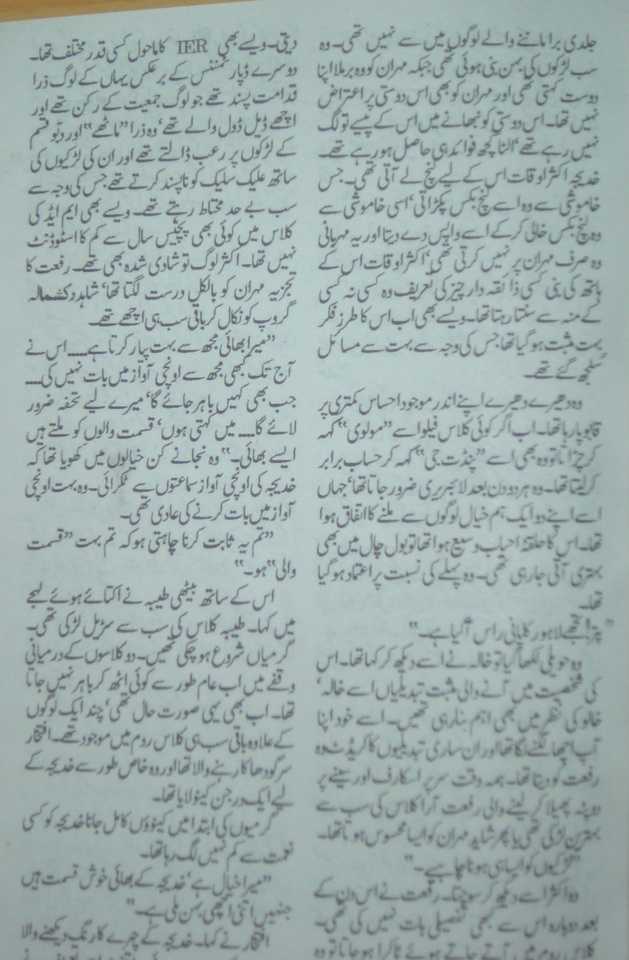 جلدی برا ماننے والے لوگوں میں سے نہیں تھی۔ وہ
سب لڑکوں کی بہن بنی ہوئی تھی جبکہ مہران کو وہ برملا اپنا
دوست کہتی تھی اور مہران کو بھی اس دوستی پر اعتراض
نہیں تھا۔ اس دوستی کو نبھانے میں اس کے پیسے تو لگ
نہیں رہے تھے‘ الٹا کچھ فوائد ہی حاصل ہو رہے تھے۔
خدیجہ اکثر اوقات اس کے لیے لنچ لے آتی تھی۔ جس
خاموشی سے وہ اسے لنچ بکس پکڑاتی‘ اسی خاموشی سے
وہ لنچ بکس خالی کر کے اسے واپس دے دیتا اور یہ مہربانی
وہ صرف مہران پر نہیں کرتی تھی‘ اکثر اوقات اس کے
ہاتھ کی بنی کسی ذائقہ دار چیز کی تعریف وہ کسی نہ کسی
کے منہ سے سنتا رہتا تھا۔ ویسے بھی اب اس کا طرز فکر
بہت مثبت ہو گیا تھا جس کی وجہ سے بہت سے مسائل
سلجھ گئے تھے۔
وہ دھیرے دھیرے اپنے اندر موجود احساس کمتری پر
قابو پا رہا تھا۔ اب اگر کوئی کلاس فیلو اسے ”مولوی“ کہہ
کر چڑاتا تو وہ بھی اسے ”پنڈت جی“ کہہ کر حساب برابر
کر لیتا تھا۔ وہ ہر دو دن بعد لائبریری ضرور جاتا تھا‘ جہاں
اسے اپنے دو ایک ہم خیال لوگوں سے ملنے کا اتفاق ہوا
تھا۔ اس کا حلقۂ احباب وسیع ہوا تھا تو بول چال میں بھی
بہتری آتی جا رہی تھی۔ وہ پہلے کی نسبت پر اعتماد ہو گیا
تھا۔
”پترا تجھے لاہور کا پانی راس آ گیا ہے۔“
وہ حویلی لکھا گیا تو خالہ نے اسے دیکھ کر کہا تھا۔ اس
کی شخصیت میں آنے والی مثبت تبدیلیاں اسے خالہ‘
خالو کی نظر میں بھی اہم بنا رہی تھیں۔ اسے خود اپنا
آپ اچھا لگنے لگا تھا اور ان ساری تبدیلیوں کا کریڈٹ وہ
رفعت کو دیتا تھا۔ ہمہ وقت سر پر اسکارف اور سینے پر
دوپٹہ پھیلا کر لینے والی رفعت آرا کلاس کی سب سے
بہترین لڑکی تھی یا پھر شاید مہران کو ایسا محسوس ہوتا تھا۔
”لڑکیوں کو ایسا ہی ہونا چاہیے۔“
وہ اکثر اسے دیکھ کر سوچتا۔ رفعت نے اس دن کے
بعد دوبارہ اس سے کبھی تفصیلی بات نہیں کی تھی۔
کلاس روم میں آتے جاتے ہوئے ٹاکرا ہو جاتا تو وہ
دیتی۔ ویسے بھی IER کا ماحول کسی قدر مختلف تھا۔
دوسرے ڈیپارٹمنٹس کے برعکس یہاں کے لوگ ذرا
قدامت پسند تھے جو لوگ جمعیت کے رکن تھے اور
اچھے ڈیل ڈول والے تھے‘ وہ ذرا ”ماٹھے“ اور دبو قسم
کے لڑکوں پر رعب ڈالتے تھے اور ان کی لڑکیوں کی
ساتھ علیک سلیک کو ناپسند کرتے تھے جس کی وجہ سے
سب بے حد محتاط رہتے تھے۔ ویسے بھی ایم ایڈ کی
کلاس میں کوئی بھی پچیس سال سے کم کا اسٹوڈنٹ
نہیں تھا۔ اکثر لوگ تو شادی شدہ بھی تھے۔ رفعت کا
تجزیہ مہران کو بالکل درست لگتا تھا‘ شاہد دکشمالہ
گروپ کو نکال کر باقی سب ہی اچھے تھے۔
”میرا بھائی مجھ سے بہت پیار کرتا ہے.... اس نے
آج تک کبھی مجھ سے اونچی آواز میں بات نہیں کی....
جب بھی کہیں باہر جائے گا‘ میرے لیے تحفہ ضرور
لائے گا.... میں کہتی ہوں‘ قسمت والوں کو ملتے ہیں
ایسے بھائی۔“ وہ نجانے کن خیالوں میں کھویا تھا کہ
خدیجہ کی اونچی آواز سماعتوں سے ٹکرائی۔ وہ بہت اونچی
آواز میں بات کرنے کی عادی تھی۔
”تم یہ ثابت کرنا چاہتی ہو کہ تم بہت ”قسمت
والی“ ہو۔“
اس کے ساتھ بیٹھی طیبہ نے اکتائے ہوئے لہجے
میں کہا۔ طیبہ کلاس کی سب سے سڑیل لڑکی تھی۔
گرمیاں شروع ہو چکی تھیں۔ دو کلاسوں کے درمیانی
وقفے میں اب عام طور سے کوئی اٹھ کر باہر نہیں جاتا
تھا۔ اب بھی یہی صورت حال تھی‘ چند ایک لوگوں
کے علاوہ باقی سب ہی کلاس روم میں موجود تھے۔ افتخار
سرگودھا کا رہنے والا تھا اور وہ خاص طور سے خدیجہ کے
لیے ایک درجن کینو لایا تھا۔
گرمیوں کی ابتدا میں کینوؤں کا مل جانا خدیجہ کو کسی
نعمت سے کم نہیں لگ رہا تھا۔
”میرا خیال ہے‘ خدیجہ کے بھائی خوش قسمت ہیں
جنہیں اتنی اچھی بہن ملی ہے۔“
افتخار نے کہا۔ خدیجہ کے چہرے کا رنگ دیکھنے والا